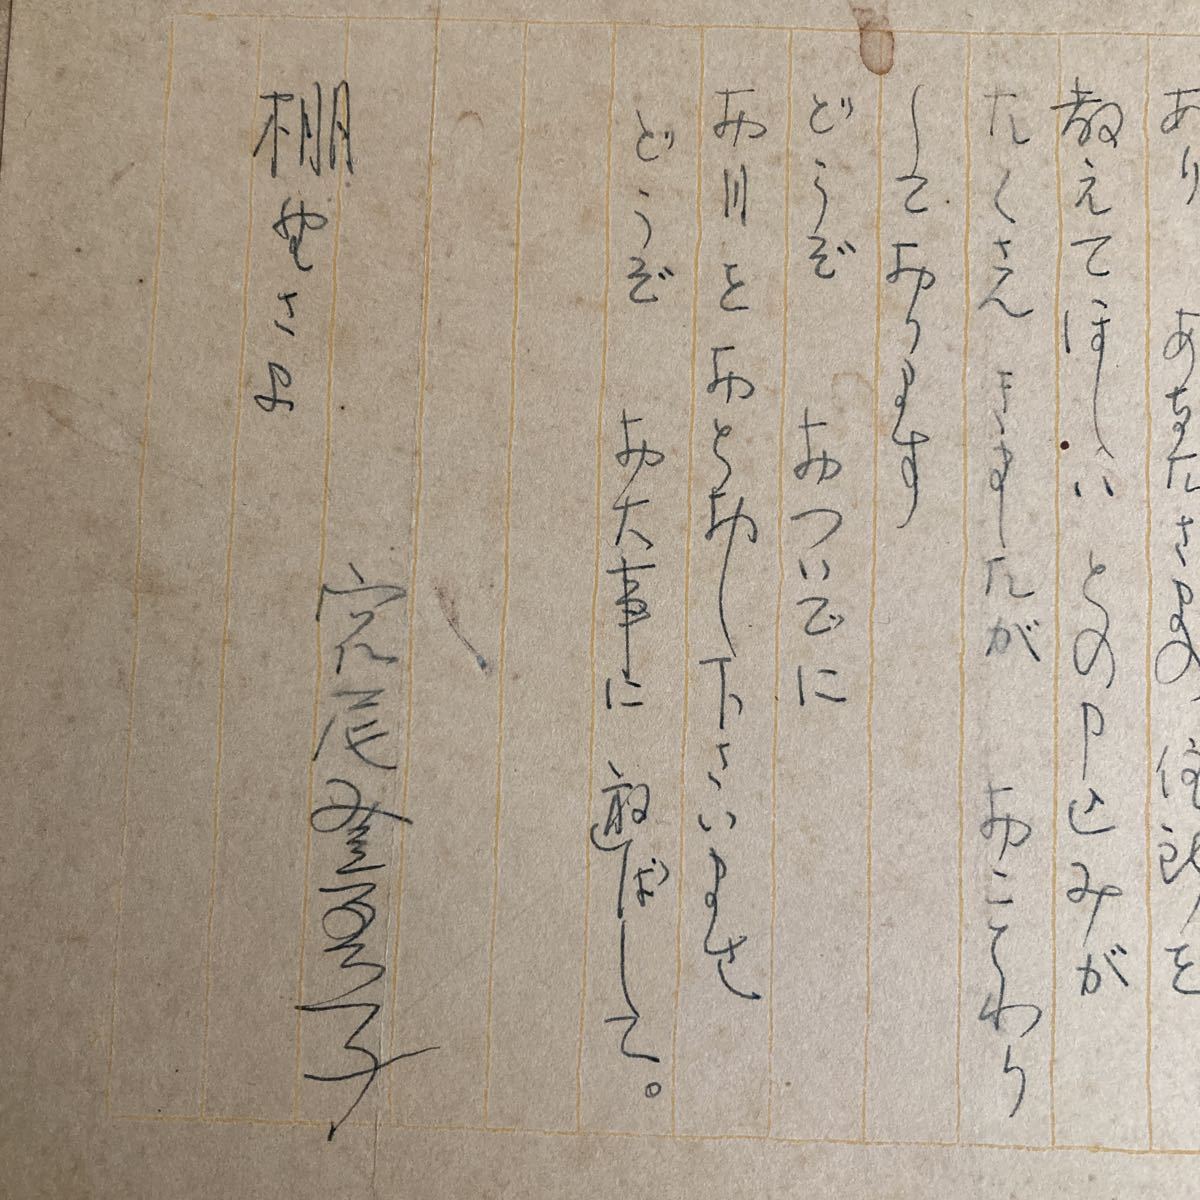 あり あなたさまの、住所を
教えてほしい との申込みが
たくさん きましたが おことわり
しております
どうぞ おついでに
お月とお とめし下さいませ
どうぞ お大事に 遊ばして。
棚 さま